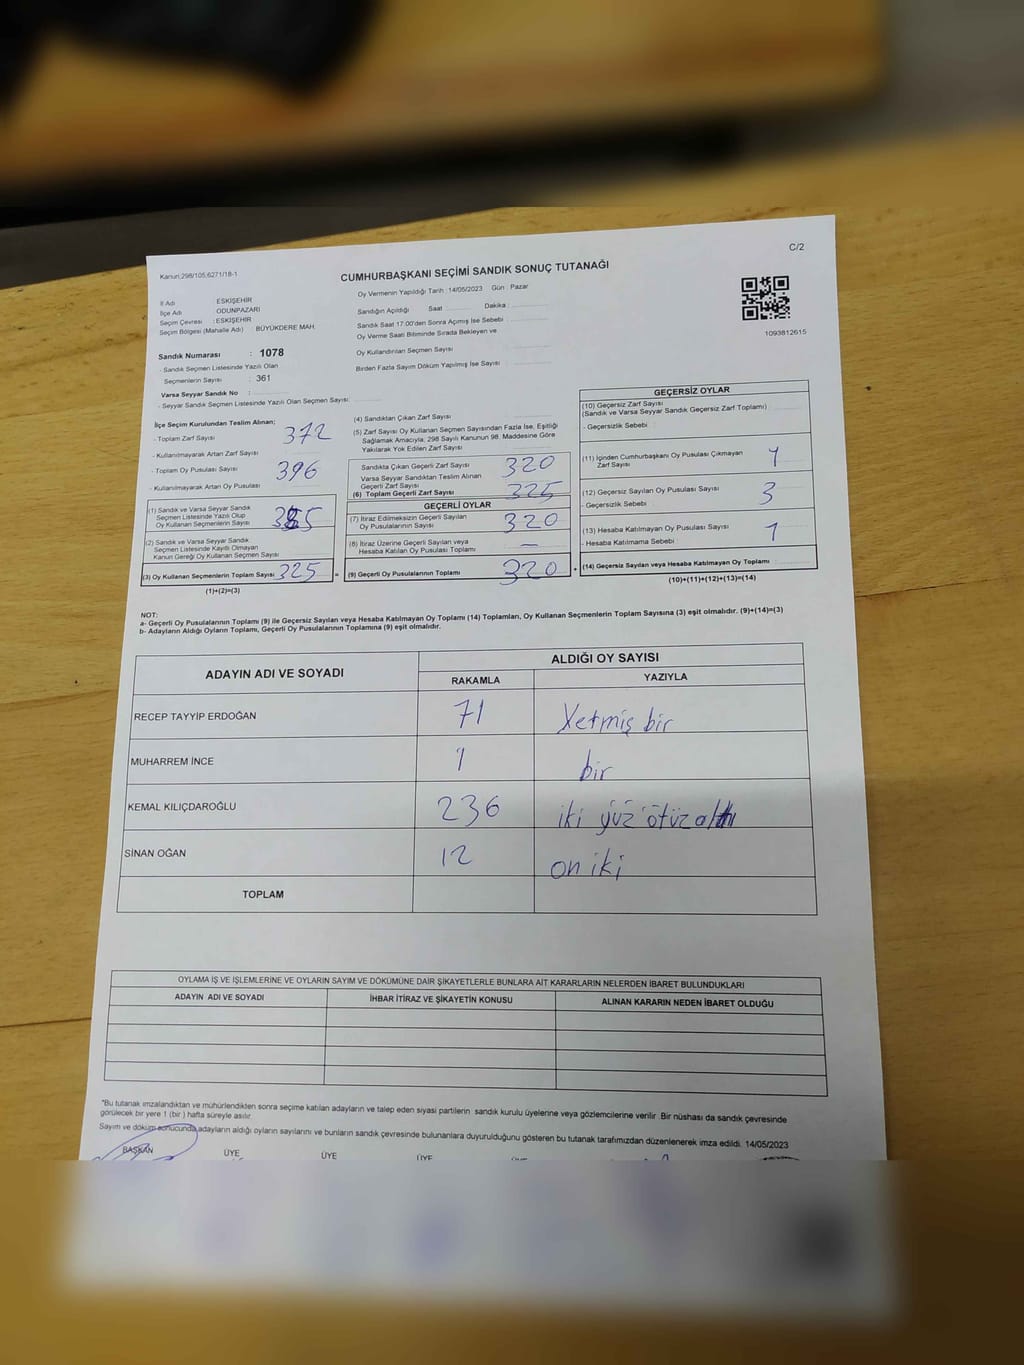 C/2
Kanun:298/105;6271/18-1
CUMHURBAŞKANI SEÇİMİ SANDIK SONUÇ TUTANAĞI
Oy Vermenin Yapıldığı Tarih : 14/05/2023 Gün : Pazar
İl Adı ESKİŞEHİR
İlçe Adı ODUNPAZARI
Seçim Çevresi : ESKİŞEHİR
Seçim Bölgesi (Mahalle Adı) BÜYÜKDERE MAH.
Sandığın Açıldığı Saat Dakika :
Sandık Saat 17:00'den Sonra Açılmış İse Sebebi :
Oy Verme Saati Bitiminde Sırada Bekleyen ve
Oy Kullandırılan Seçmen Sayısı
Birden Fazla Sayım Döküm Yapılmış İse Sayısı
1093812615
Sandık Numarası : 1078
- Sandık Seçmen Listesinde Yazılı Olan
Seçmenlerin Sayısı : 361
Varsa Seyyar Sandık No :
- Seyyar Sandık Seçmen Listesinde Yazılı Olan Seçmen Sayısı:
İlçe Seçim Kurulundan Teslim Alınan;
- Toplam Zarf Sayısı 372
- Kullanılmayarak Artan Zarf Sayısı
- Toplam Oy Pusulası Sayısı 396
- Kullanılmayarak Artan Oy Pusulası
(1) Sandık ve Varsa Seyyar Sandık
Seçmen Listesinde Yazılı Olup
Oy Kullanan Seçmenlerin Sayısı
(2) Sandık ve Varsa Seyyar Sandık
Seçmen Listesinde Kayıtlı Olmayan
Kanun Gereği Oy Kullanan Seçmen Sayısı
(3) Oy Kullanan Seçmenlerin Toplam Sayısı 325
(1)+(2)=(3)
(4) Sandıktan Çıkan Zarf Sayısı
(5) Zarf Sayısı Oy Kullanan Seçmen Sayısından Fazla İse, Eşitliği
Sağlamak Amacıyla, 298 Sayılı Kanunun 98. Maddesine Göre
Yakılarak Yok Edilen Zarf Sayısı
Sandıkta Çıkan Geçerli Zarf Sayısı 320
Varsa Seyyar Sandıktan Teslim Alınan
Geçerli Zarf Sayısı
(6) Toplam Geçerli Zarf Sayısı 325
GEÇERLİ OYLAR
(7) İtiraz Edilmeksizin Geçerli Sayılan
Oy Pusulalarının Sayısı 320
(8) İtiraz Üzerine Geçerli Sayılan veya
Hesaba Katılan Oy Pusulası Toplamı —
(9) Geçerli Oy Pusulalarının Toplamı 320
GEÇERSİZ OYLAR
(10) Geçersiz Zarf Sayısı
(Sandık ve Varsa Seyyar Sandık Geçersiz Zarf Toplamı)
- Geçersizlik Sebebi
(11) İçinden Cumhurbaşkanı Oy Pusulası Çıkmayan
Zarf Sayısı 1
(12) Geçersiz Sayılan Oy Pusulası Sayısı 3
- Geçersizlik Sebebi
(13) Hesaba Katılmayan Oy Pusulası Sayısı 1
- Hesaba Katılmama Sebebi :
(14) Geçersiz Sayılan veya Hesaba Katılmayan Oy Toplamı
(10)+(11)+(12)+(13)=(14)
NOT:
a- Geçerli Oy Pusulalarının Toplamı (9) ile Geçersiz Sayılan veya Hesaba Katılmayan Oy Toplamı (14) Toplamları, Oy Kullanan Seçmenlerin Toplam Sayısına (3) eşit olmalıdır. (9)+(14)=(3)
b- Adayların Aldığı Oyların Toplamı, Geçerli Oy Pusulalarının Toplamına (9) eşit olmalıdır.
ADAYIN ADI VE SOYADI ALDIĞI OY SAYISI
RAKAMLA YAZIYLA
RECEP TAYYİP ERDOĞAN 71 Yetmiş bir
MUHARREM İNCE 1 bir
KEMAL KILIÇDAROĞLU 236 iki yüz otuz altı
SİNAN OĞAN 12 on iki
TOPLAM
OYLAMA İŞ VE İŞLEMLERİNE VE OYLARIN SAYIM VE DÖKÜMÜNE DAİR ŞİKAYETLERLE BUNLARA AİT KARARLARIN NELERDEN İBARET BULUNDUKLARI
ADAYIN ADI VE SOYADI İHBAR İTİRAZ VE ŞİKAYETİN KONUSU ALINAN KARARIN NEDEN İBARET OLDUĞU
*Bu tutanak imzalandıktan ve mühürlendikten sonra seçime katılan adayların ve talep eden siyasi partilerin sandık kurulu üyelerine veya gözlemcilerine verilir. Bir nüshası da sandık çevresinde
görülecek bir yere 1 (bir) hafta süreyle asılır.
Sayım ve döküm sonucunda adayların aldığı oyların sayılarını ve bunların sandık çevresinde bulunanlara duyurulduğunu gösteren bu tutanak tarafımızdan düzenlenerek imza edildi. 14/05/2023
BAŞKAN ÜYE ÜYE ÜYE